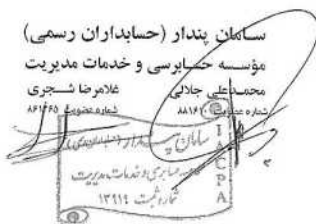 سامان پندار (حسابداران رسمی)
مؤسسه حسابرسی و خدمات مدیریت
محمدعلی جلالی غلامرضا شجری
شماره عضویت شماره عضویت
سامان
حسابرسی و خدمات مدیریت
شماره ثبت ۱۳۹۱۴
IACPA